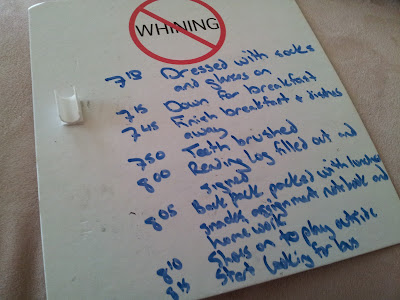 WHINING
7:15 Dressed with socks
and glasses on
7:15 Down for breakfast
7:45 Finish breakfast + dishes
away
7:50 Teeth brushed
8:00 Reading log filled out and
signed
8:05 Back pack packed with lunches
snacks, assignment notebook and
home work
8:10 Shoes on to play outside
8:15 Start looking for bus